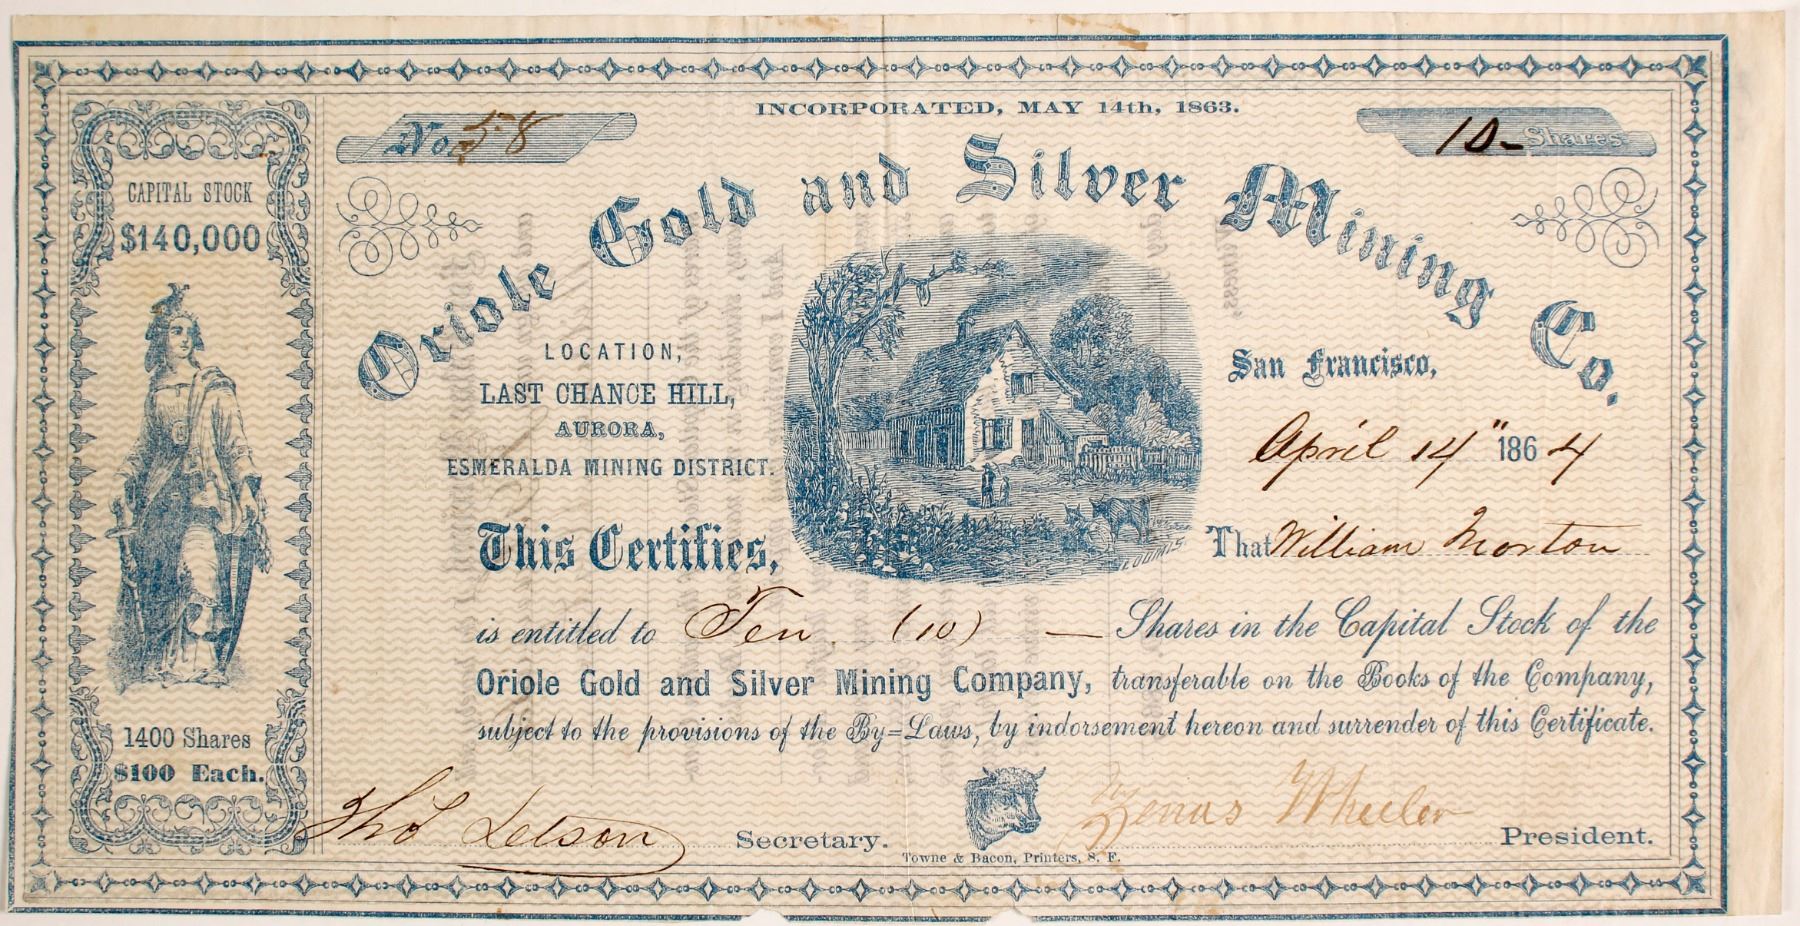 INCORPORATED, MAY 14th, 1863.
No. 58
10- Shares
Oriole Gold and Silver Mining Co.
CAPITAL STOCK
$140,000
LOCATION,
LAST CHANCE HILL,
AURORA,
ESMERALDA MINING DISTRICT.
San Francisco,
April 14" 1864
This Certifies,
That William Norton
LOOMIS
is entitled to Ten (10) — Shares in the Capital Stock of the
Oriole Gold and Silver Mining Company, transferable on the Books of the Company,
subject to the provisions of the By=Laws, by indorsement hereon and surrender of this Certificate.
1400 Shares
$100 Each.
Thos Letson Secretary.
Zenas Wheeler President.
Towne & Bacon, Printers, S. F.